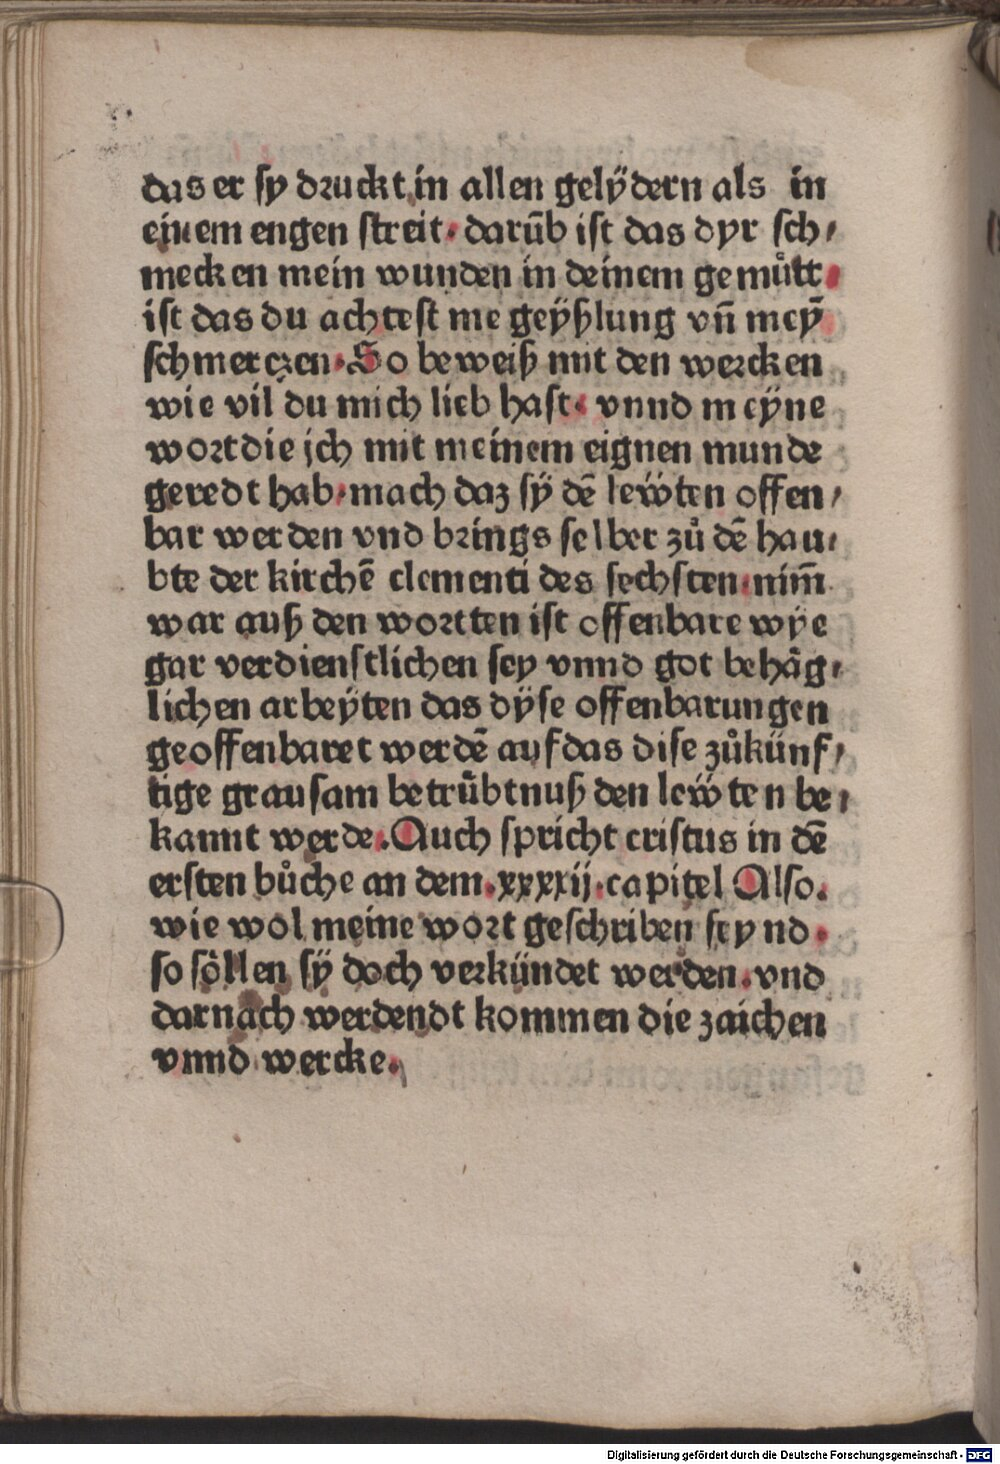 das er sy druckt in allen gelÿdern als in
einem engen streit· darūb ist das dyr sch⸗
mecken mein wunden in deinem gemuͤtt·
ist das du achtest me geÿßlung vn̄ meȳ
schmerczen·So beweiß mit den wercken
wie vil du mich lieb hast· vnnd meÿne
wort die jch mit meinem eignen munde
geredt hab·mach daz sÿ dē lew̎ten offen⸗
bar werden vnd brings selber zů dē hau⸗
bte der kirchē clementi des sechsten·nim̄
war auß den wortten ist offenbare wÿe
gar verdienstlichen sey vnnd got behäg⸗
lichen arbeÿten das dÿse offenbarungen
geoffenbaret werdē auf das dise zůkünf⸗
tige grausam betrübtnuß den lew̎ten be⸗
kannt werde·Auch spricht cristus in dē
ersten bůche an dem·xxxxij·capitel Also.
wie wol meine wort geschriben seynd·
so söllen sÿ doch verkündet werden·vnd
darnach werdendt kommen die zaichen
vnnd wercke·
Digitalisierung gefördert durch die Deutsche Forschungsgemeinschaft - DFG